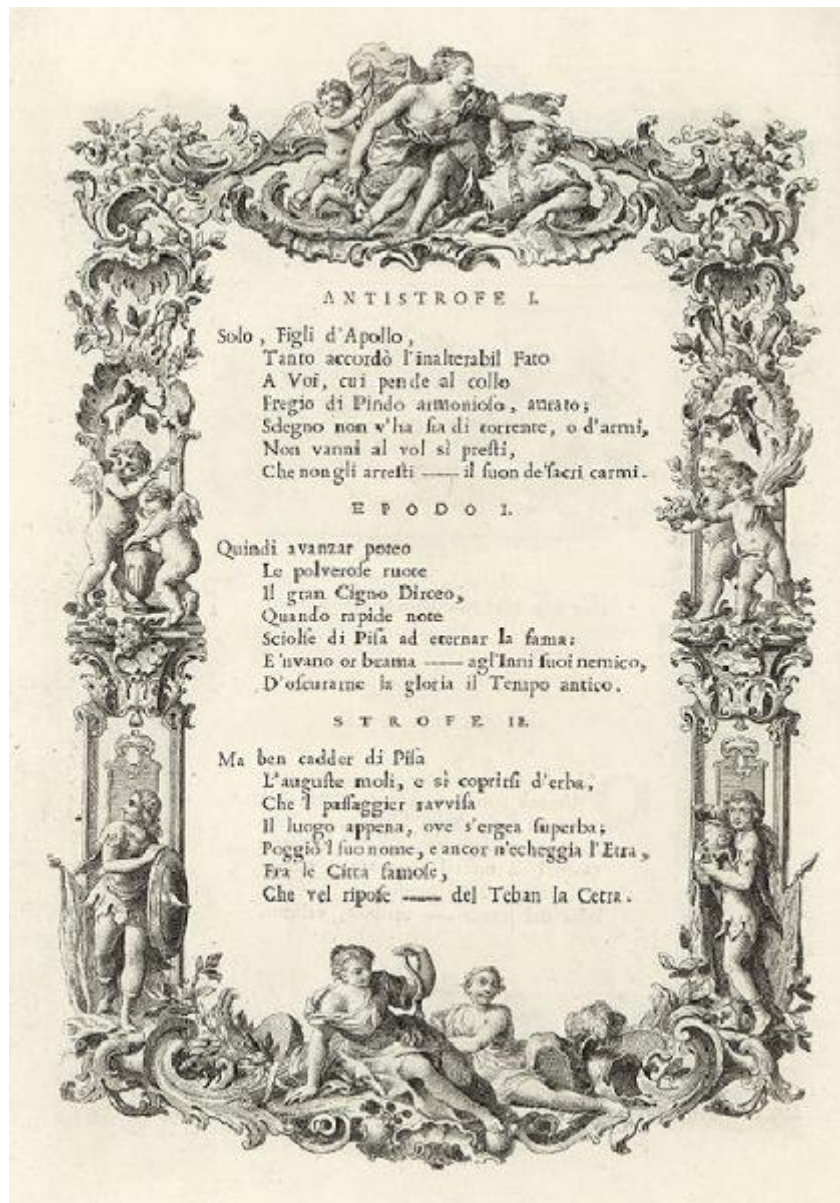 ANTISTROFE I.
Solo, Figli d'Apollo,
Tanto accordò l'inalterabil Fato
A Voi, cui pende al collo
Fregio di Pindo armonioſo, aurato;
Sdegno non v'ha ſia di torrente, o d'armi,
Non vanni al vol sì preſti,
Che non gli arreſti —— il ſuon de'ſacri carmi.
EPODO I.
Quindi avanzar poteo
Le polveroſe ruote
Il gran Cigno Dirceo,
Quando rapide note
Sciolſe di Piſa ad eternar la fama:
E'nvano or brama —— agl'Inni ſuoi nemico,
D'oſcurarne la gloria il Tempo antico.
STROFE II.
Ma ben cadder di Piſa
L'auguſte moli, e sì coprirſi d'erba,
Che 'l paſſaggier ravviſa
Il luogo appena, ove s'ergea ſuperba;
Poggiò 'l ſuo nome, e ancor n'echeggia l'Etra,
Fra le Città famoſe,
Che vel ripoſe —— del Teban la Cetra.